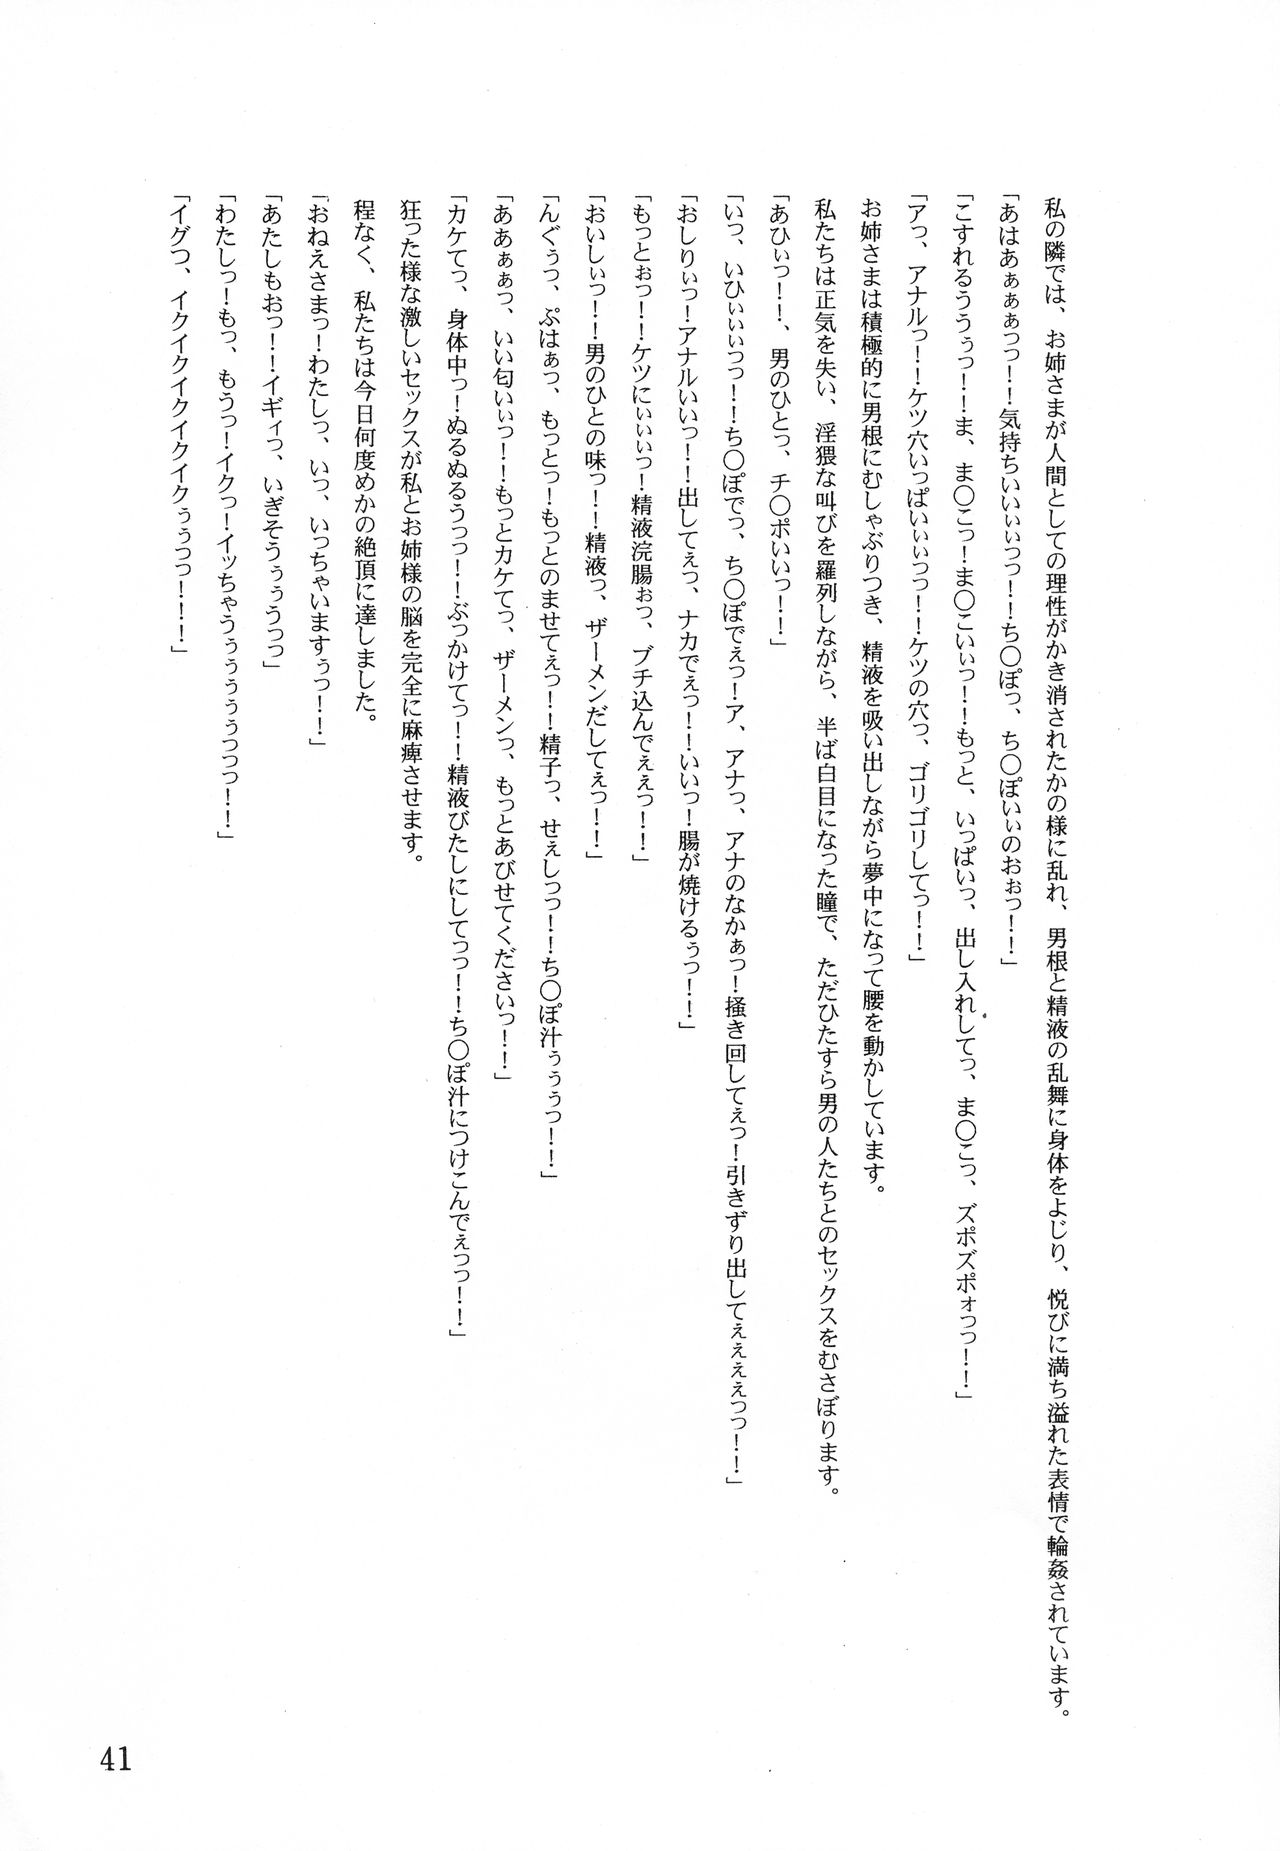 私の隣では、お姉さまが人間としての理性がかき消されたかの様に乱れ、男根と精液の乱舞に身体をよじり、悦びに満ち溢れた表情で輪姦されています。
「あはあぁぁぁっっ！！気持ちいいぃぃっっ！！ち〇ぽっ、ち〇ぽいぃのおぉっ！！」
「こすれるううぅっ！！ま、ま〇こっ！ま〇こいぃっ！！もっと、いっぱいっ、出し入れしてっ、ま〇こっ、ズポズポォっっ！！」
「アっ、アナルっ！！ケツ穴いっぱいぃぃっっ！！ケツの穴っ、ゴリゴリしてっ！！」
お姉さまは積極的に男根にむしゃぶりつき、精液を吸い出しながら夢中になって腰を動かしています。
私たちは正気を失い、淫猥な叫びを羅列しながら、半ば白目になった瞳で、ただひたすら男の人たちとのセックスをむさぼります。
「あひぃっ！！、男のひとっ、チ〇ポいいっ！！」
「いっ、いひぃぃぃっっ！！ち〇ぽでっ、ち〇ぽでぇっ！ア、アナっ、アナのなかぁっ！掻き回してぇっ！引きずり出してぇぇぇぇっっ！！」
「おしりぃっ！アナルいいっ！！出してぇっ、ナカでぇっ！！いいっ！腸が焼けるぅっ！！」
「もっとぉっ！！ケツにぃぃぃっ！精液浣腸ぉっ、ブチ込んでぇぇっ！！」
「おいしぃっ！！男のひとの味っ！！精液っ、ザーメンだしてぇっ！！」
「んぐぅっ、ぷはぁっ、もっとっ！もっとのませてぇっ！！精子っ、せぇしっっ！！ち〇ぽ汁ぅぅぅっ！！」
「ああぁぁっ、いい匂いぃっ！！もっとカケてっ、ザーメンっ、もっとあびせてくださいっ！！」
「カケてっ、身体中っ！ぬるぬるうっっ！！ぶっかけてっ！！精液びたしにしてっっ！！ち〇ぽ汁につけこんでぇっっ！！」
狂った様な激しいセックスが私とお姉様の脳を完全に麻痺させます。
程なく、私たちは今日何度めかの絶頂に達しました。
「おねえさまっ！わたしっ、いっ、いっちゃいますぅっ！！」
「あたしもおっ！！イギィっ、いぎそうぅぅうっっ」
「わたしっ！もっ、もうっ！イクっ！イッちゃうぅぅぅぅぅっっっ！！」
「イグつ、イクイクイクイクイクぅぅっっ！！！」
41